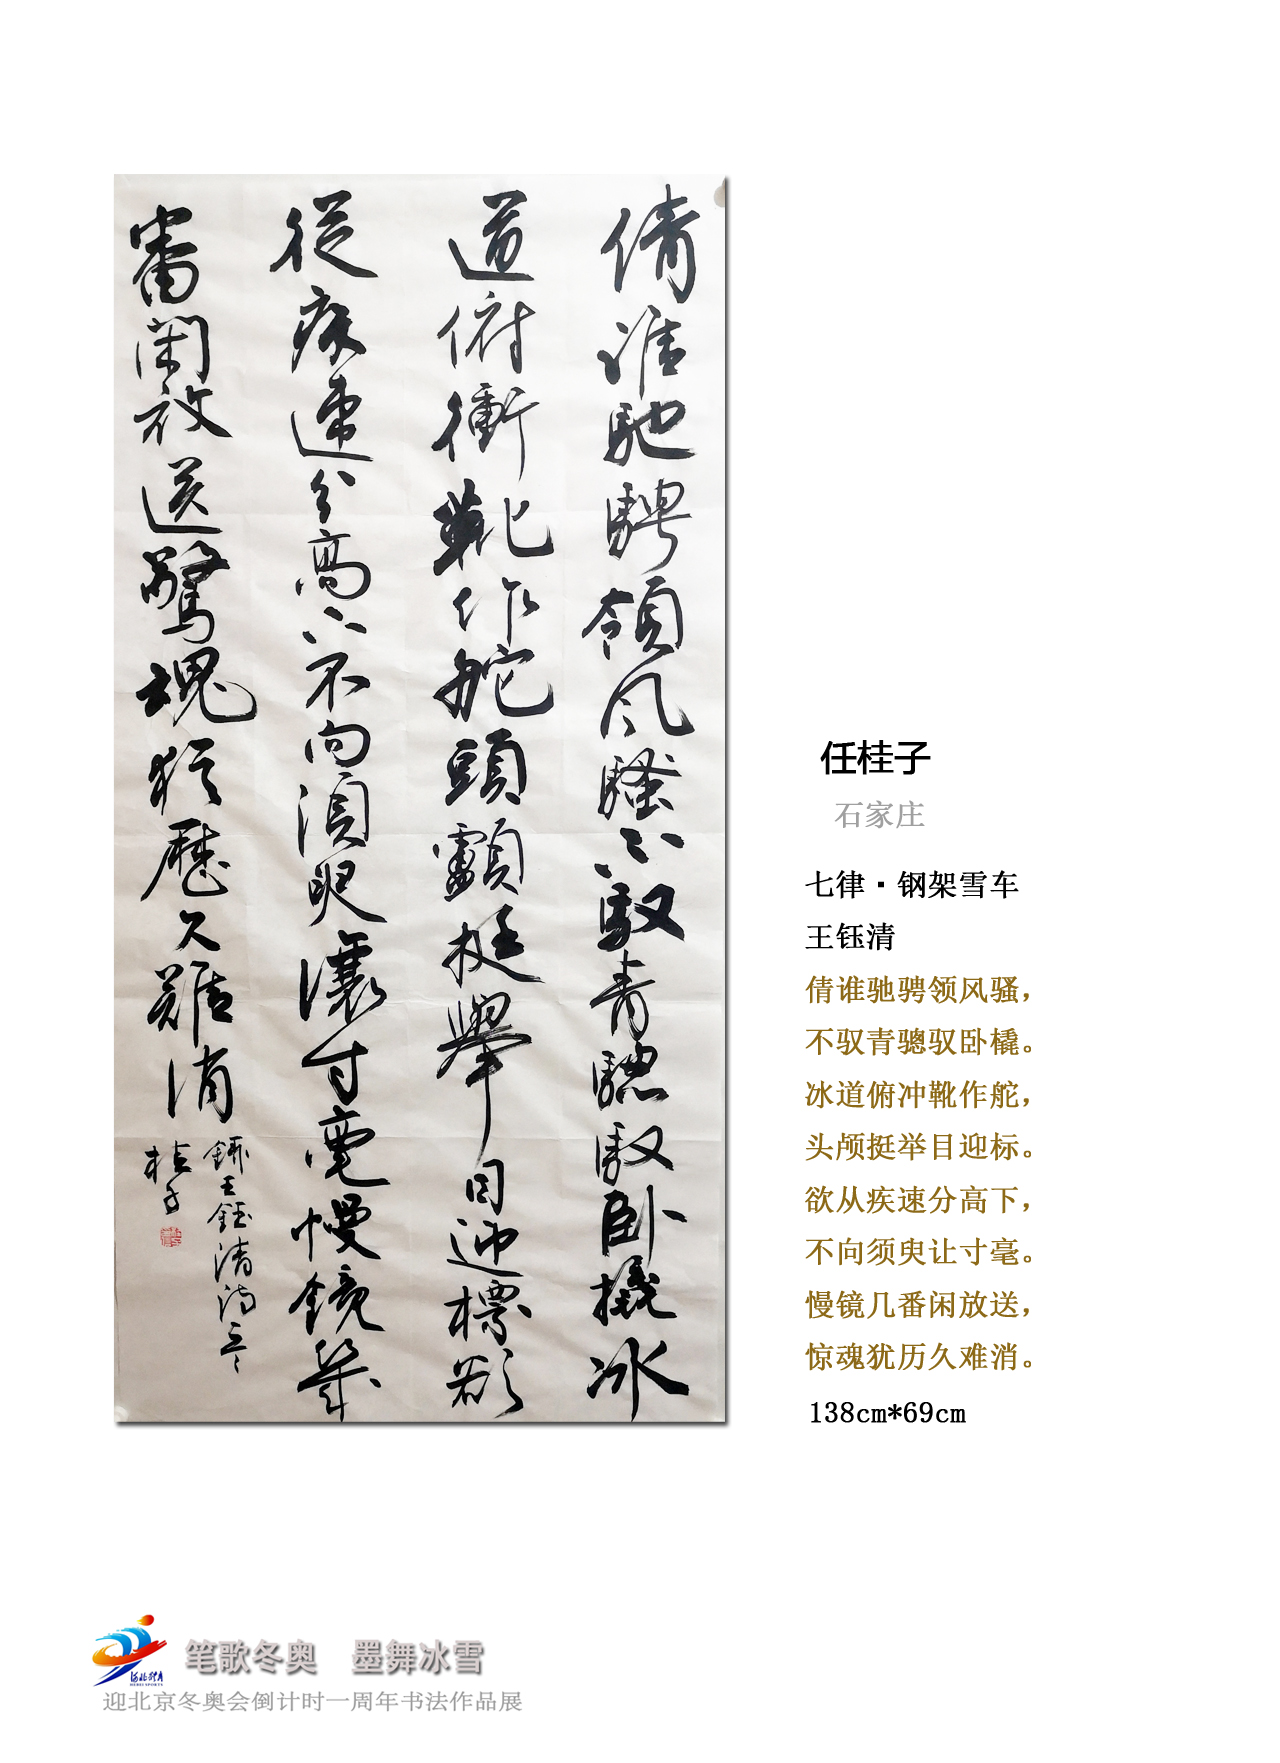 倩誰馳騁領風騷不馭青驄馭卧橇冰
道俯衝靴作舵頭顱挺舉目迎標欲
從疾速分高下不向須臾讓寸毫慢鏡幾
番閑放送驚魂猶歷久難消
錄王鈺清詩
桂子
任桂子
石家庄
七律·钢架雪车
王钰清
倩谁驰骋领风骚，
不驭青骢驭卧橇。
冰道俯冲靴作舵，
头颅挺举目迎标。
欲从疾速分高下，
不向须臾让寸毫。
慢镜几番闲放送，
惊魂犹历久难消。
138cm*69cm
河北体育
HEBEI SPORTS
笔歌冬奥 墨舞冰雪
迎北京冬奥会倒计时一周年书法作品展